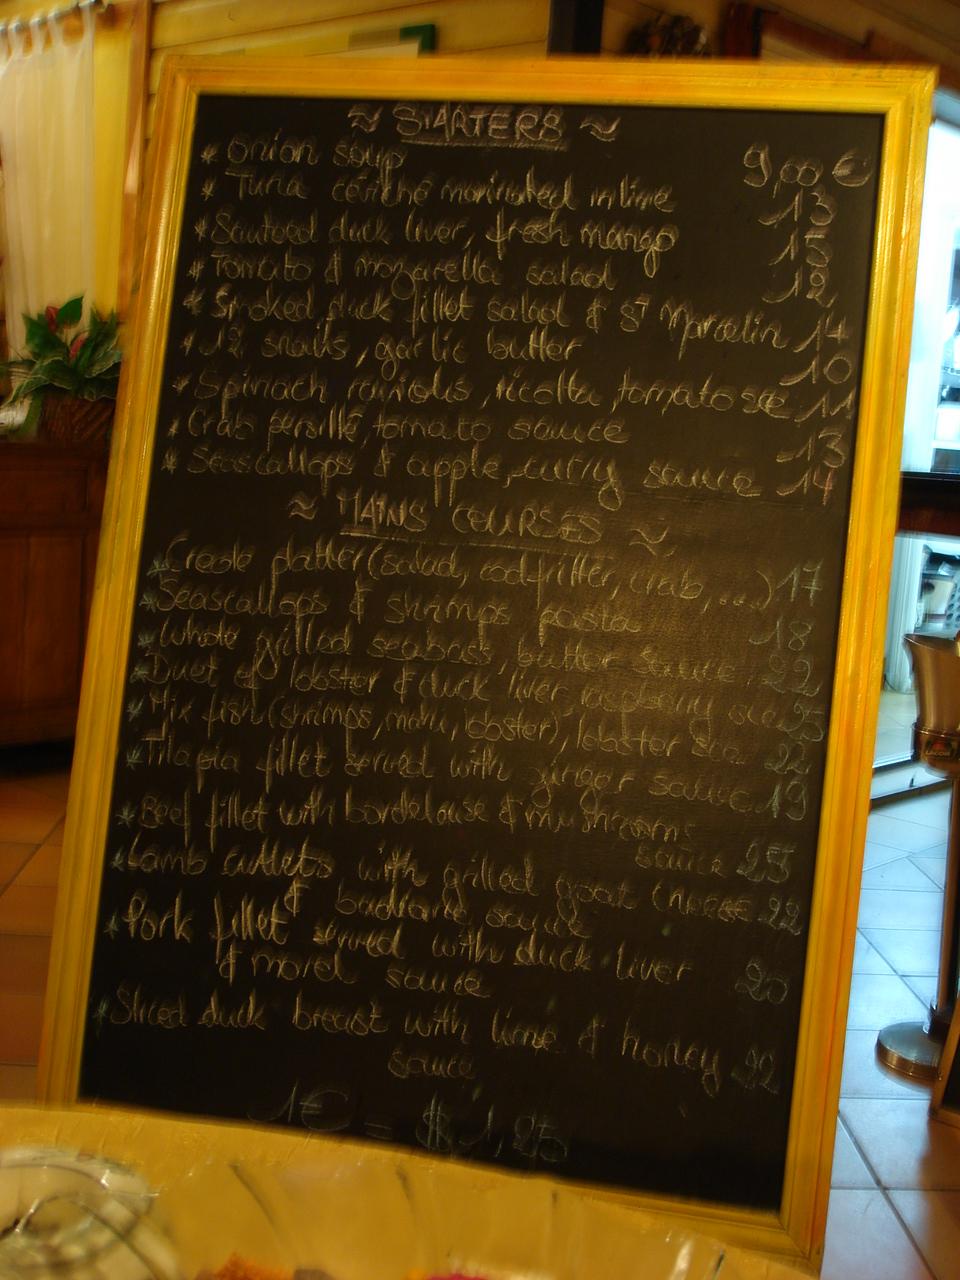 ≈ STARTERS ≈
* Onion soup 9,00 €
* Tuna ceviche marinated in lime 13
* Sauteed duck liver, fresh mango 15
* Tomato & mozarella salad 12
* Smoked duck fillet salad & St Marcelin 14
* 12 snails, garlic butter 10
* Spinach raviolis, ricotta, tomato sce 11
* Crab persillé, tomato sauce 13
* Seascallops & apple, curry sauce 14
≈ MAINS COURSES ≈
* Creole platter (salad, cod-fritter, crab, ...) 17
* Seascallops & shrimps pasta 18
* Whole grilled seabass, butter sauce 22
* Duet of lobster & duck liver, raspberry sce 25
* Mix fish (shrimps, mahi, lobster), lobster sce 22
* Tilapia fillet served with ginger sauce 19
* Beef fillet with bordelaise & mushrooms
sauce 25
* Lamb cutlets with grilled goat cheese 22
& sauce
* Pork fillet served with duck liver
& morel sauce 20
* Sliced duck breast with lime & honey 22
sauce
1€ = $ 1,25